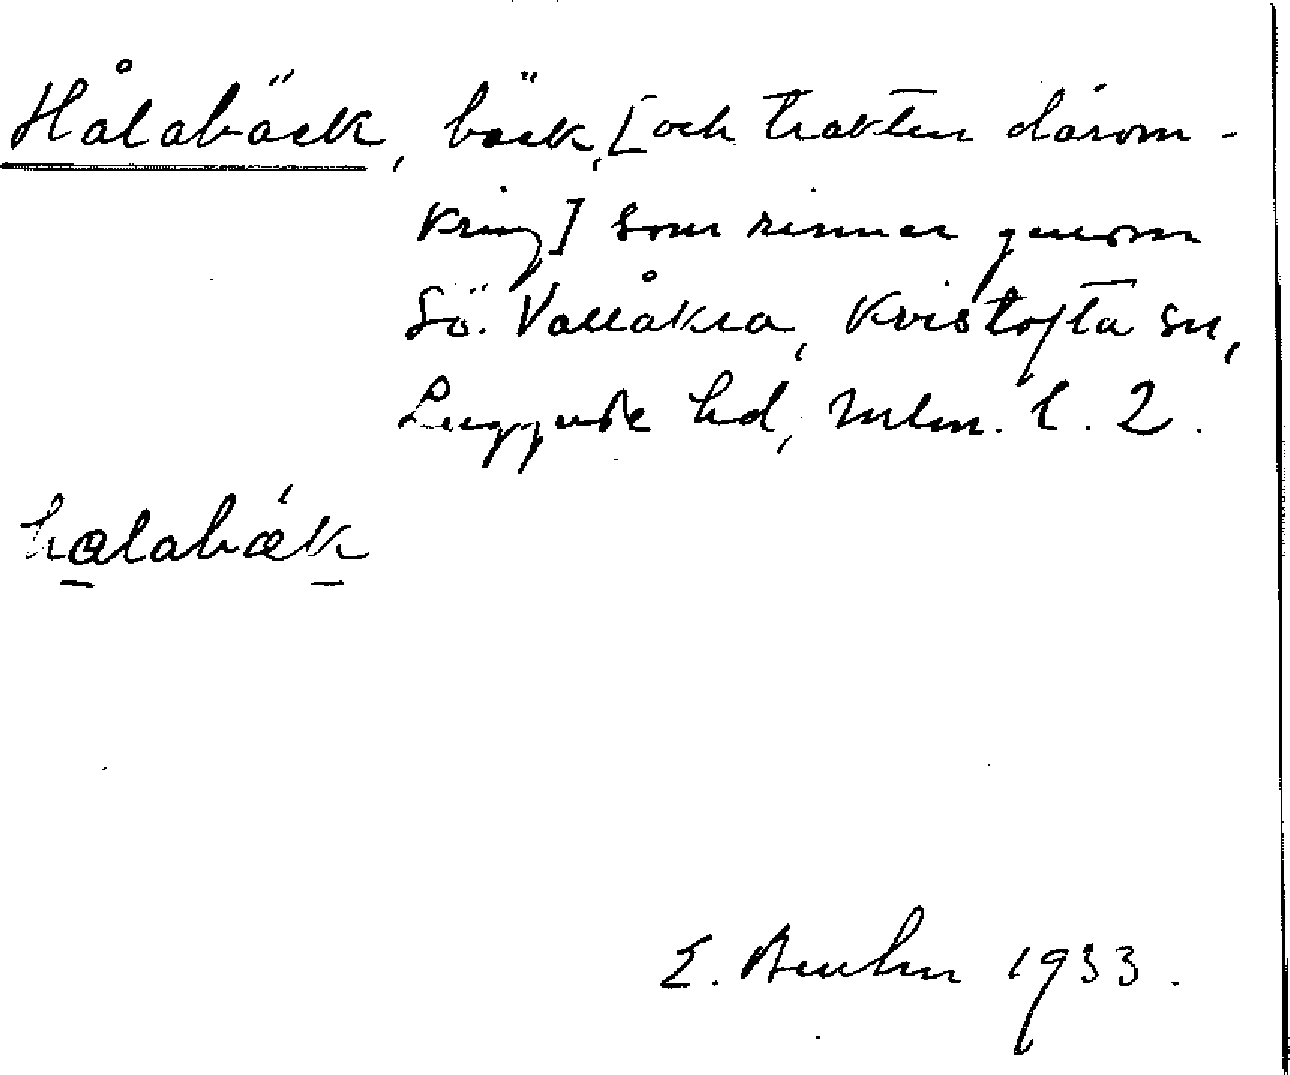 Hålabäck, bäck, [och trakten därom-
kring] som rinner genom
Sö. Vallåkra, Kvistofta sn,
Luggude hd, Mlm. l. 2.
halabǽk
E. 1933.